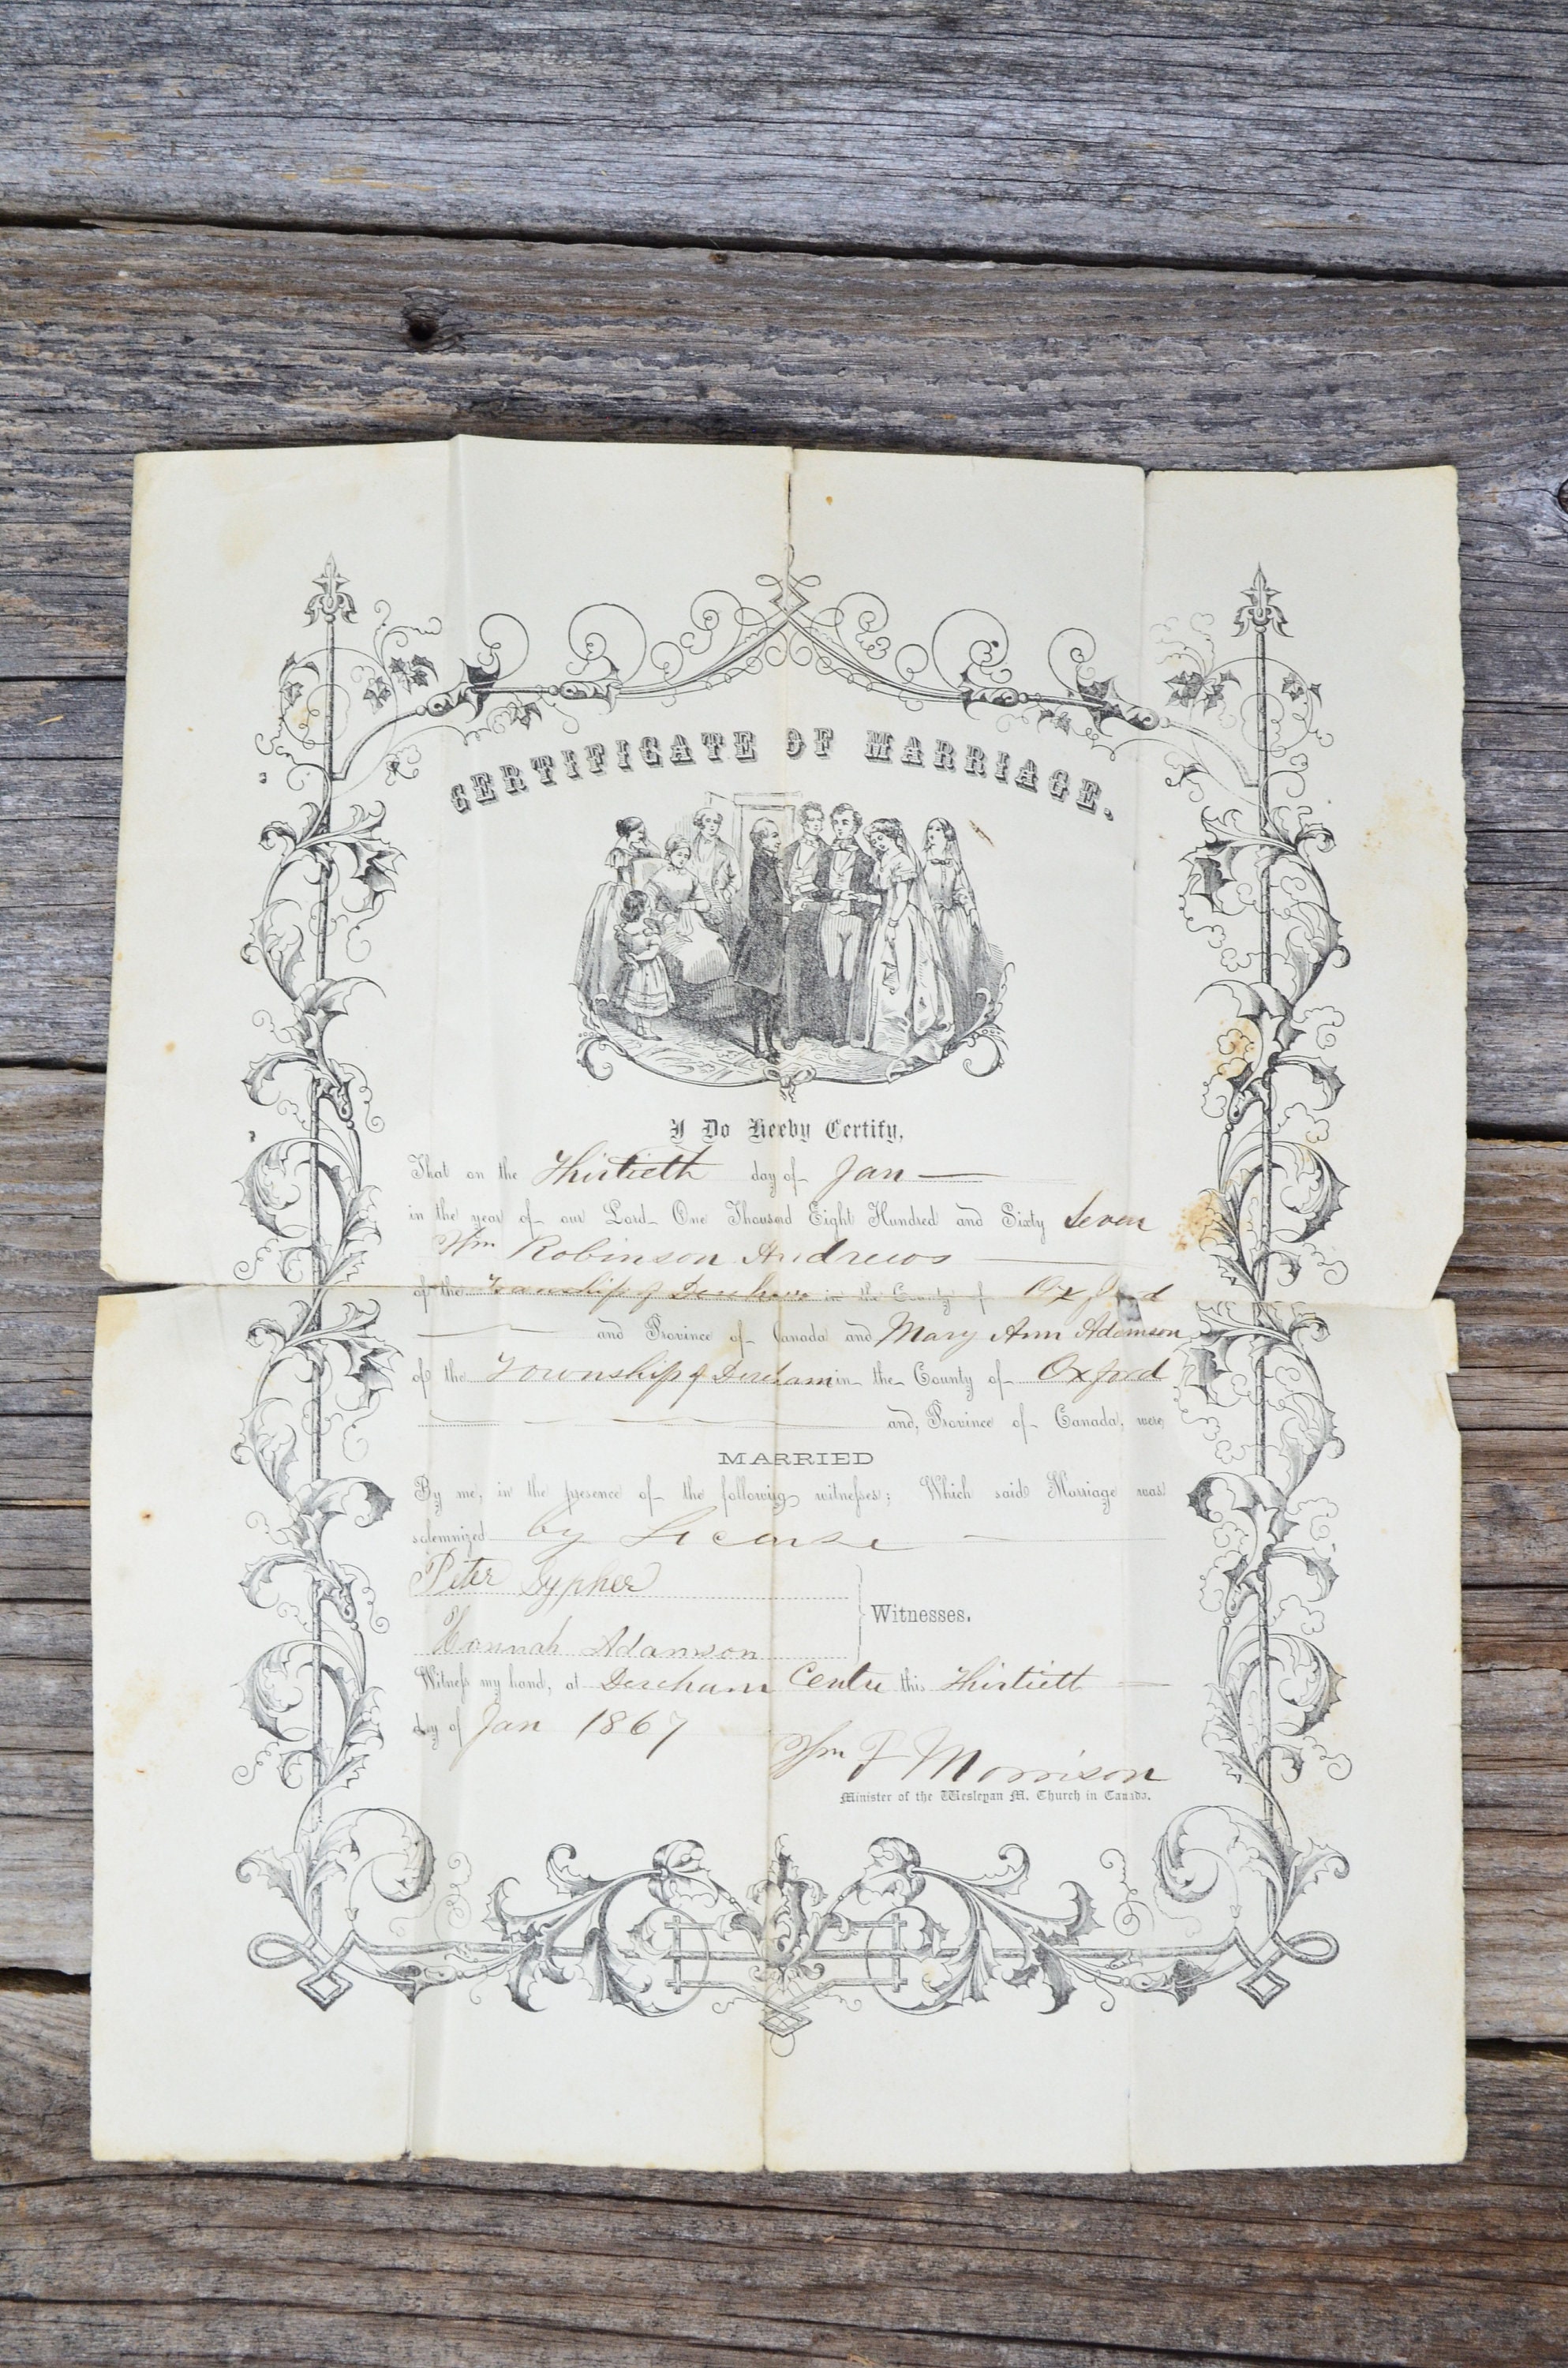 CERTIFICATE OF MARRIAGE.
I Do Heeby Certify,
That on the Thirtieth day of Jan
in the year of our Lord One Thousand Eight Hundred and Sixty Seven
Wm Robinson Andrews
of the Township of Dereham in the County of Oxford
and Province of Canada and Mary Ann Adamson
of the Township of Dereham in the County of Oxford
and, Province of Canada, were,
MARRIED
By me, in the presence of the following witnesses; Which said Marriage was
solemnized by License
Peter Sypher
Witnesses.
Hannah Adamson
Witness my hand, at Dereham Centre this Thirtieth
day of Jan 1867
Wm F Morrison
Minister of the Wesleyan M. Church in Canada.